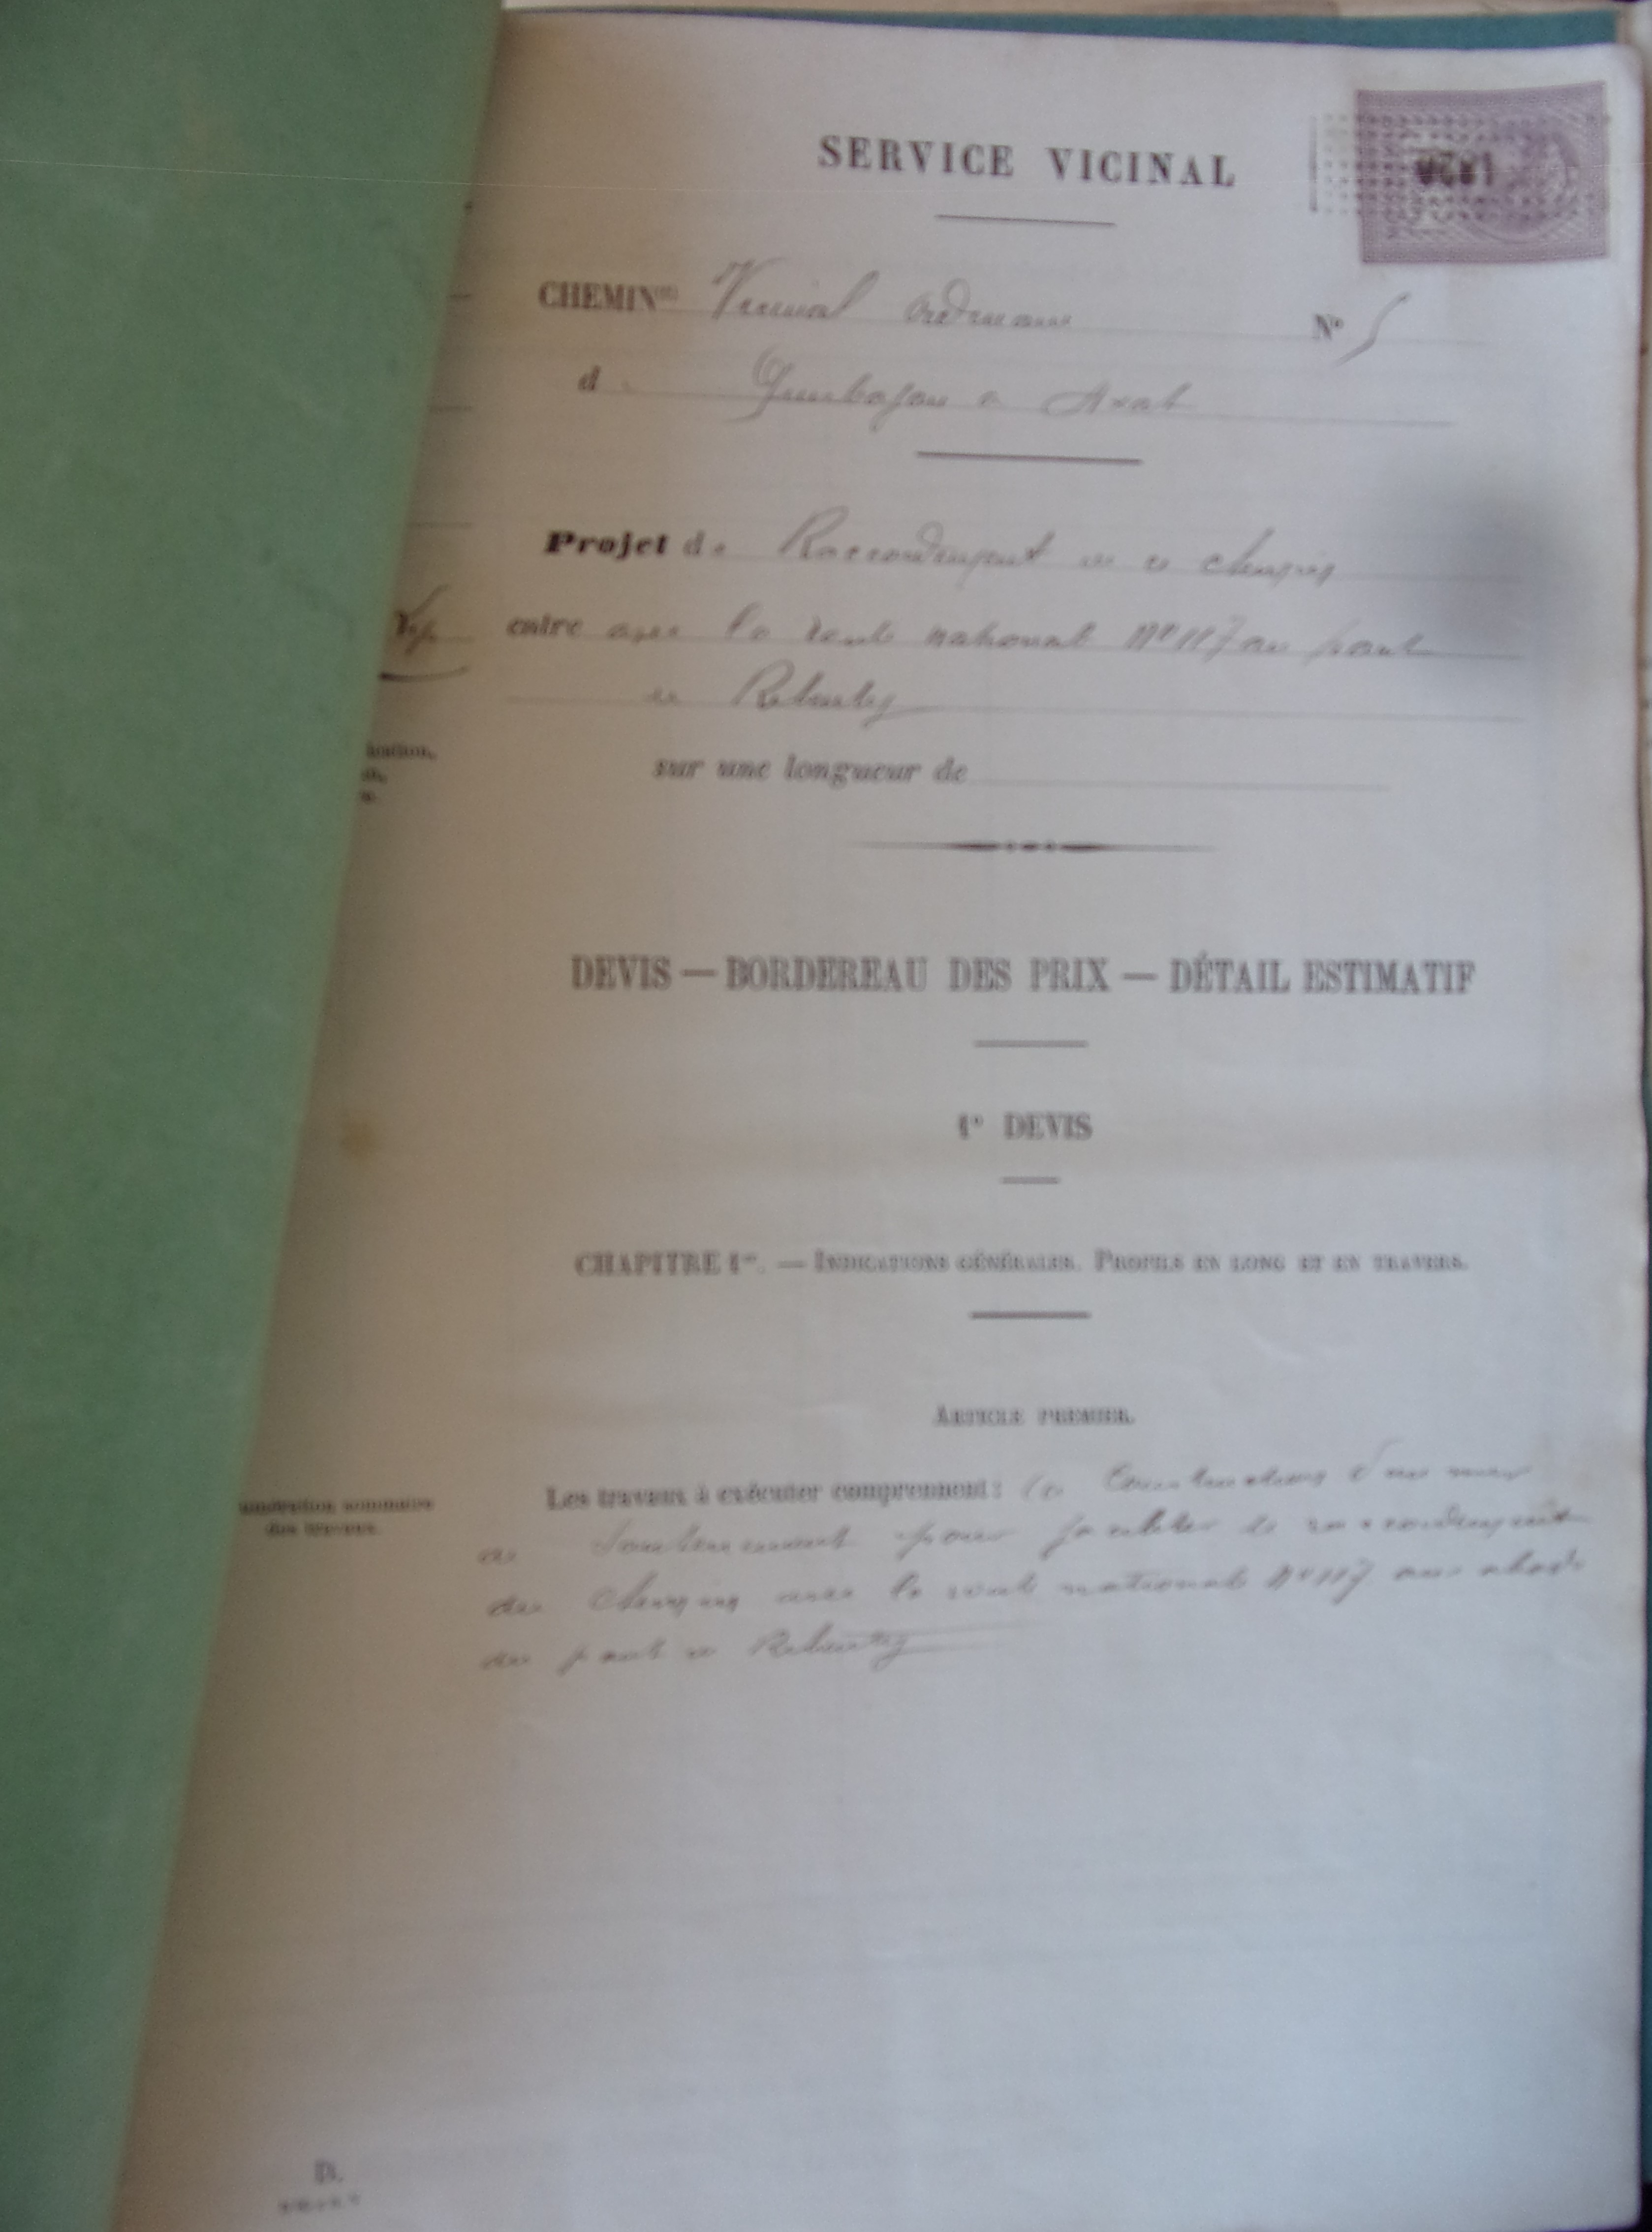 SERVICE VICINAL
CHEMIN Vicinal ordinaire N° 5
d Quirbajou a Axat
Projet de Raccordement de ce chemin
entre avec la route nationale N° 117 au pont
de Rebenty
sur une longueur de
DEVIS — BORDEREAU DES PRIX — DÉTAIL ESTIMATIF
1° DEVIS
CHAPITRE 1er. — INDICATIONS GÉNÉRALES. PROFILS EN LONG ET EN TRAVERS.
ARTICLE PREMIER.
sommaire
des travaux.
Les travaux à exécuter comprennent : la Construction d'un mur
de Soutenement pour faciliter le raccordement
du Chemin avec la route nationale N° 117 aux abords
du pont de Rebenty
D.